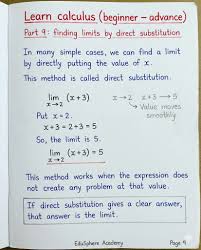 Learn calculus (beginner – advance)
Part 9: finding limits by direct substitution
In many simple cases, we can find a limit
by directly putting the value of x.
This method is called direct substitution.
lim (x+3)    x→2    x+3 → 5
x→2
↳ Value moves
smoothly
Put x = 2.
x+3 = 2+3 = 5
So, the limit is 5.
lim (x+3) = 5
x→2
This method works when the expression does
not create any problem at that value.
If direct substitution gives a clear answer,
that answer is the limit.
EduSphere Academy
Page 9